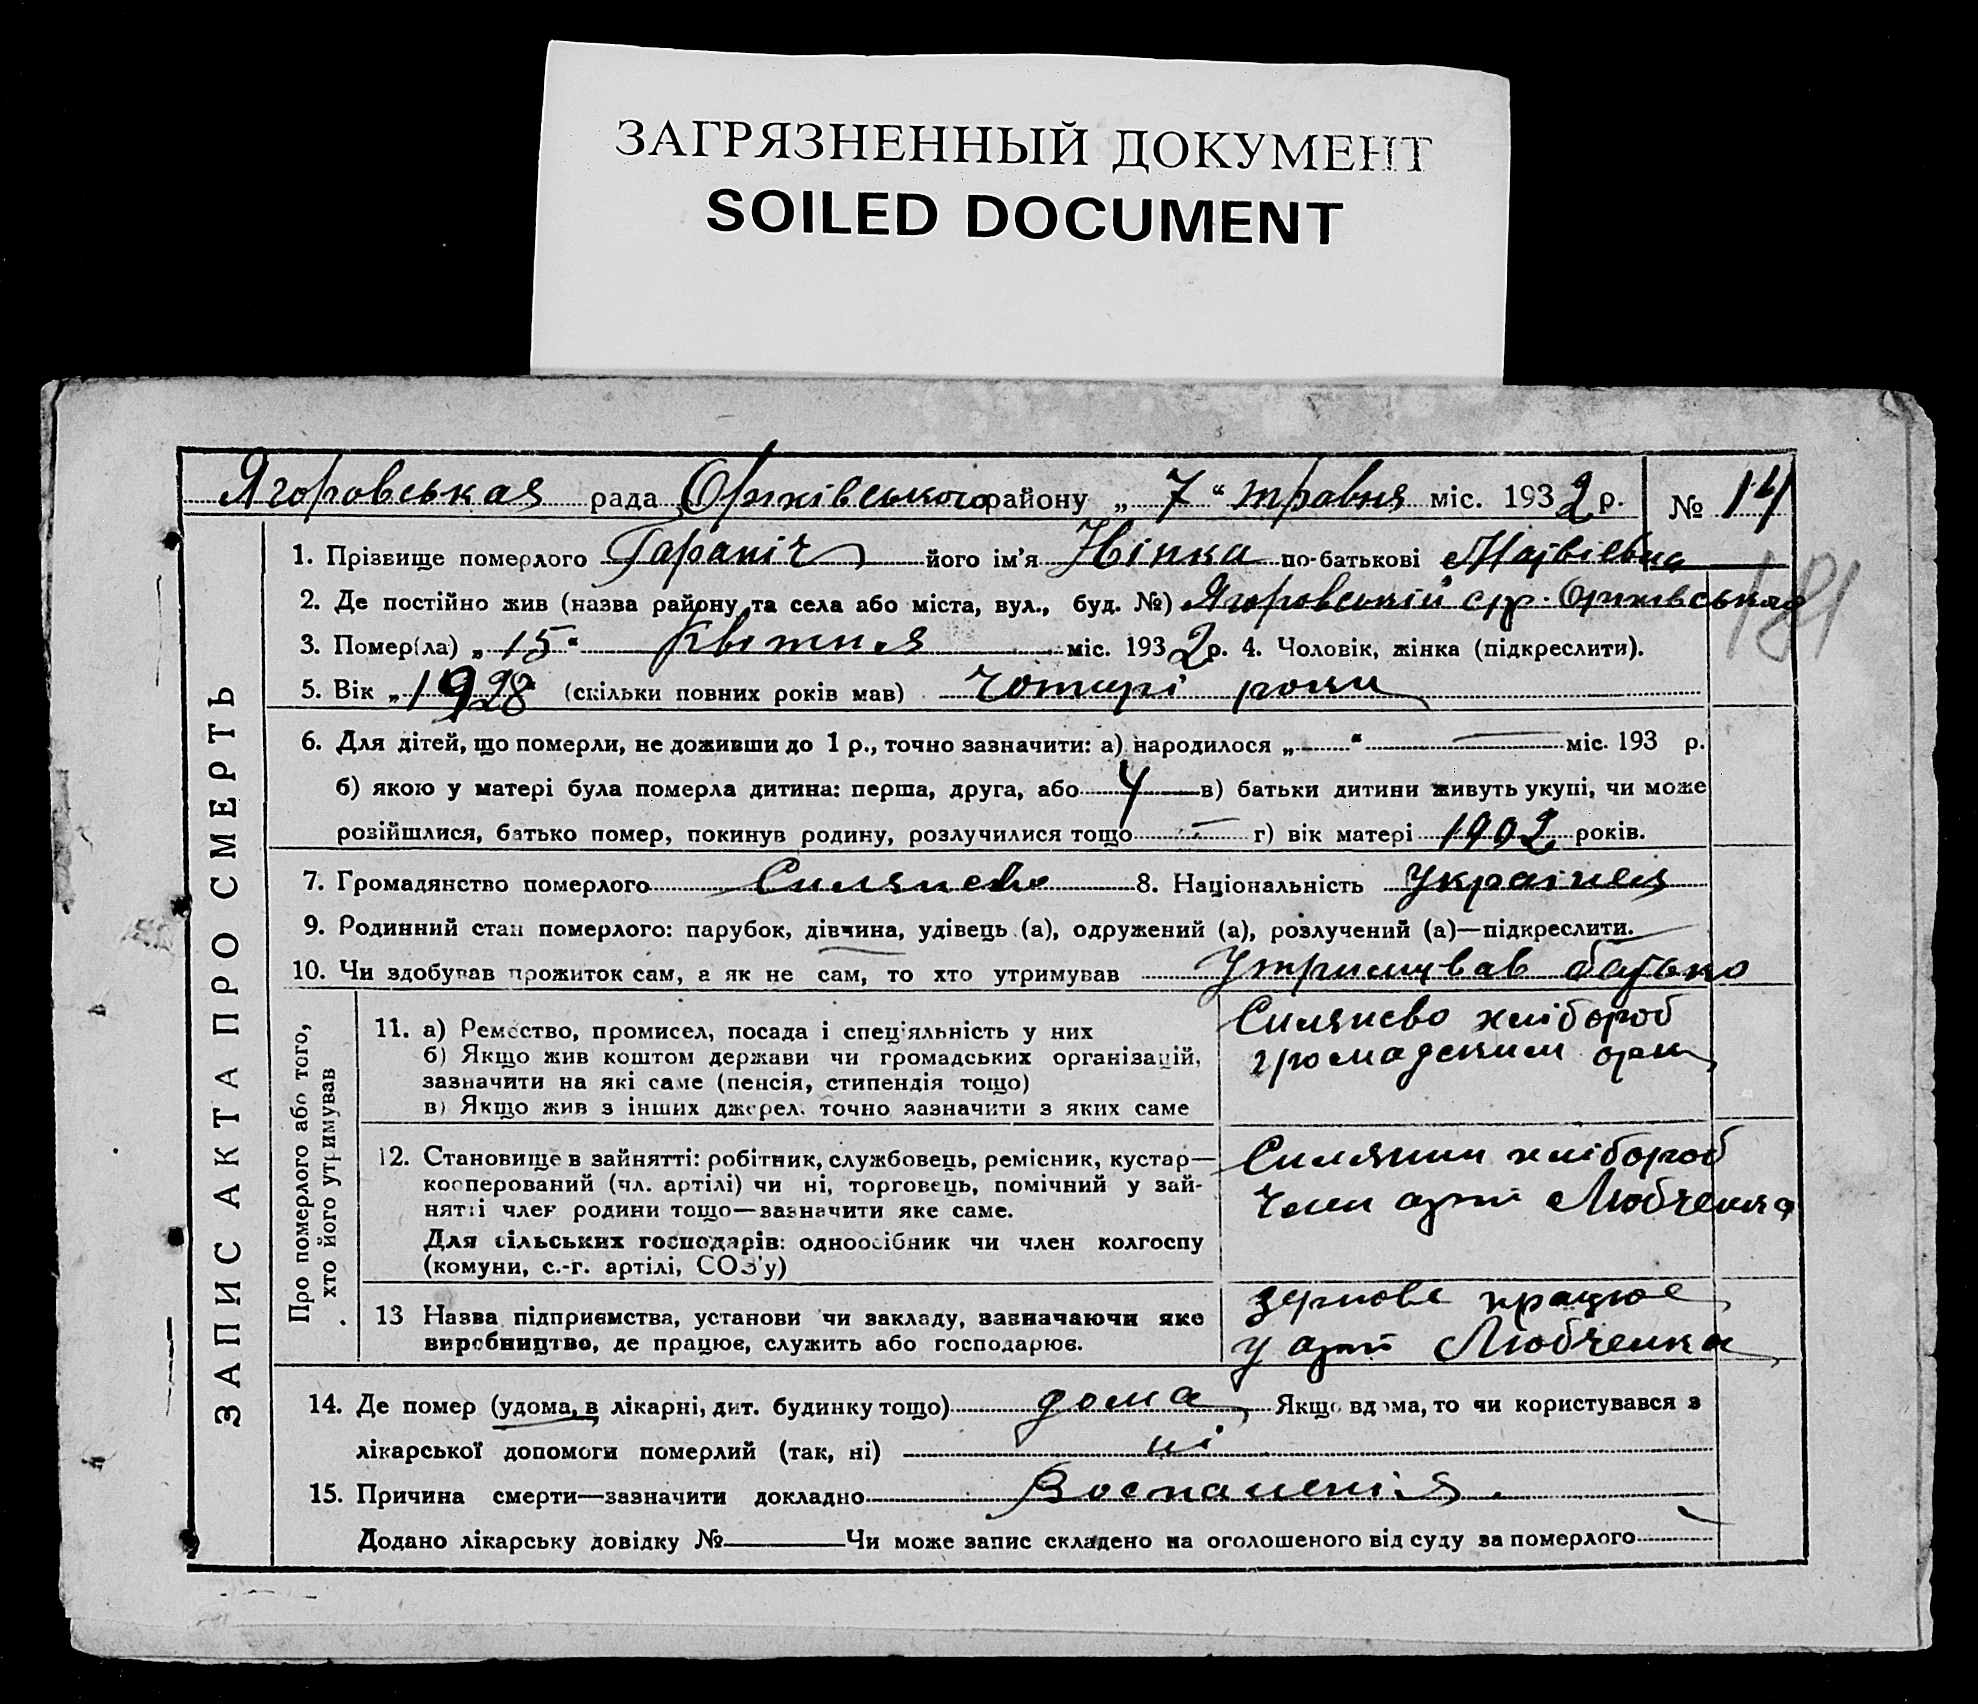 ЗАГРЯЗНЕННЫЙ ДОКУМЕНТ
SOILED DOCUMENT
Ягоровськая рада Оріхівського району „ 7 “ травня міс. 1932 р. № 14
181
ЗАПИС АКТА ПРО СМЕРТЬ
1. Прізвище померлого Гарапіч його ім'я Нінка по-батькові Матвіевна
2. Де постійно жив (назва району та села або міста, вул., буд. №) Ягоровській с/р. Оріхівськая
3. Помер(ла) „ 15 “ Квітня міс. 1932 р. 4. Чоловік, жінка (підкреслити).
5. Вік „ 1928 “ (скільки повних років мав) чотирі роки
6. Для дітей, що померли, не доживши до 1 р., точно зазначити: а) народилося „ “ міс. 193 р.
б) якою у матері була померла дитина: перша, друга, або 4 в) батьки дитини живуть укупі, чи може
розійшлися, батько помер, покинув родину, розлучилися тощо г) вік матері 1902 років.
7. Громадянство померлого Силянсво 8. Національність Українец
9. Родинний стан померлого: парубок, дівчина, удівець (а), одружений (а), розлучений (а)—підкреслити.
10. Чи здобував прожиток сам, а як не сам, то хто утримував Утримував батько
Про померлого або того,
хто його утримував
11. а) Ремество, промисел, посада і спеціяльність у них
б) Якщо жив коштом держави чи громадських організацій,
зазначити на які саме (пенсія, стипендія тощо)
в) Якщо жив з інших джерел, точно зазначити з яких саме
Силянсво хлібороб
громадским
12. Становище в зайнятті: робітник, службовець, ремісник, кустар—
кооперований (чл. артілі) чи ні, торговець, помічний у зай-
нятті член родини тощо—зазначити яке саме.
Для сільських господарів: одноосібник чи член колгоспу
(комуни, с.-г. артілі, СОЗ'у)
Силянин хлібороб
член арт Любченка
13 Назва підприємства, установи чи закладу, зазначаючи яке
виробництво, де працює, служить або господарює.
зернове працює
у арт Любченка
14. Де помер (удома, в лікарні, дит. будинку тощо) дома Якщо вдома, то чи користувався з
лікарської допомоги померлий (так, ні) ні
15. Причина смерти—зазначити докладно Воспаления.
Додано лікарську довідку № Чи може запис складено на оголошеного від суду за померлого